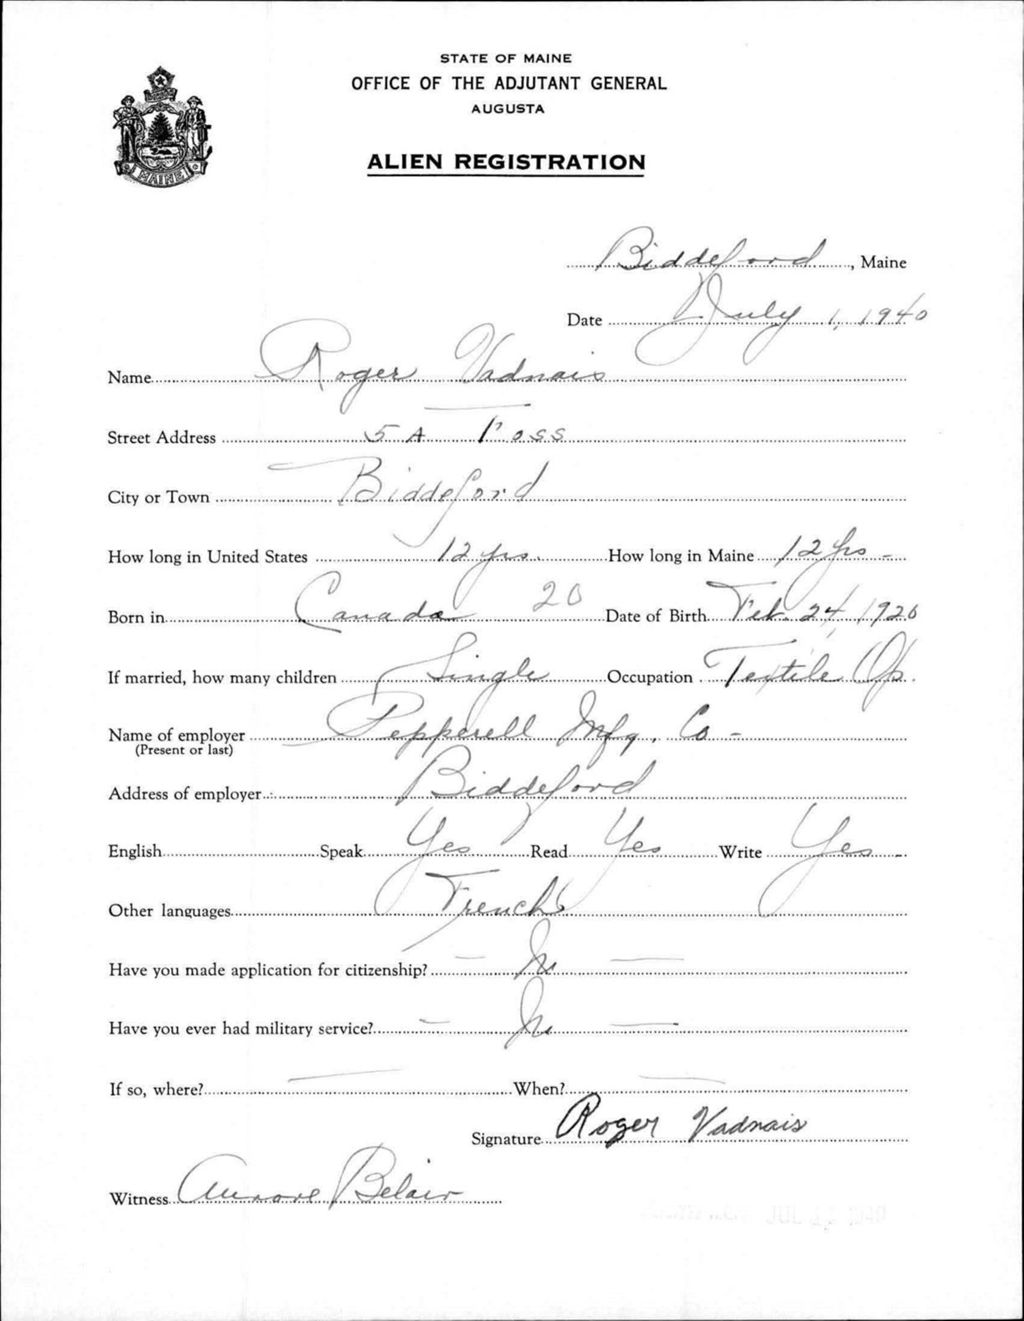 STATE OF MAINE
OFFICE OF THE ADJUTANT GENERAL
AUGUSTA
ALIEN REGISTRATION
MAINE
Biddeford, Maine
Date July 1, 1940
Name Roger Vadnais
Street Address 5A Foss
City or Town Biddeford
How long in United States 12 yrs. How long in Maine 12 yrs -
Born in Canada 20 Date of Birth Feb. 24, 1920
If married, how many children Single Occupation Textile Op.
Name of employer Pepperell Mfg. Co -
(Present or last)
Address of employer Biddeford
English Speak Yes Read Yes Write Yes -
Other languages French
Have you made application for citizenship? - No -
Have you ever had military service? - No -
If so, where? - When? -
Signature Roger Vadnais
Witness Aurore Belair